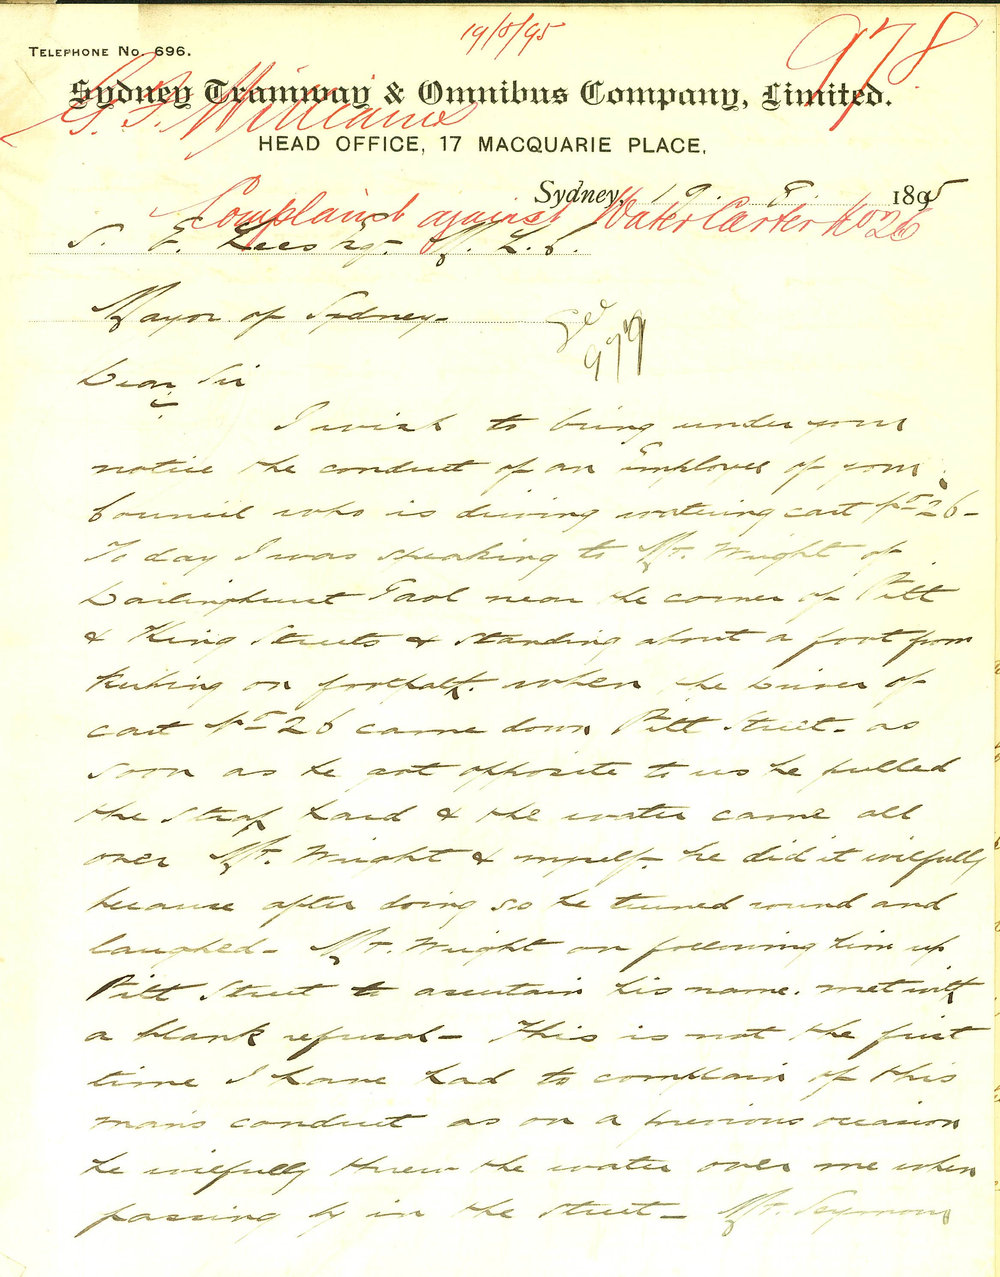 19/8/95
978
TELEPHONE No. 696.
Sydney Tramway & Omnibus Company, Limited.
Williams
HEAD OFFICE, 17 MACQUARIE PLACE,
Sydney, 19. 8. 1895
Complaint against Water Carter No 26
S. E. Lees Esq. M. L. A.
Mayor of Sydney-
See
979
Dear Sir
I wish to bring under your
notice the conduct of an Employee of your
Council who is driving watering cart No 26-
To day I was speaking to Mr. Wright of
Darlinghurst Gaol near the corner of Pitt
& King Streets & standing about a foot from
kerbing on footpath. when the Driver of
cart No 26 came down Pitt Street- as
soon as he got opposite to us he pulled
the strap hard & the water came all
over Mr. Wright & myself- he did it wilfully
because after doing so he turned round and
laughed- Mr. Wright on following him up
Pitt Street to ascertain his name. met with
a blank refusal- This is not the first
time I have had to complain of this
mans conduct as on a previous occasion
he wilfully threw the water over me when
passing by in the Street- Mr. Seymour